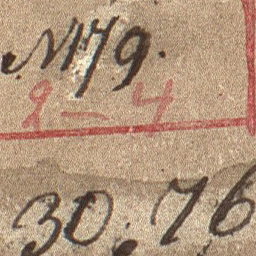 №179.
2 - 4
30.76